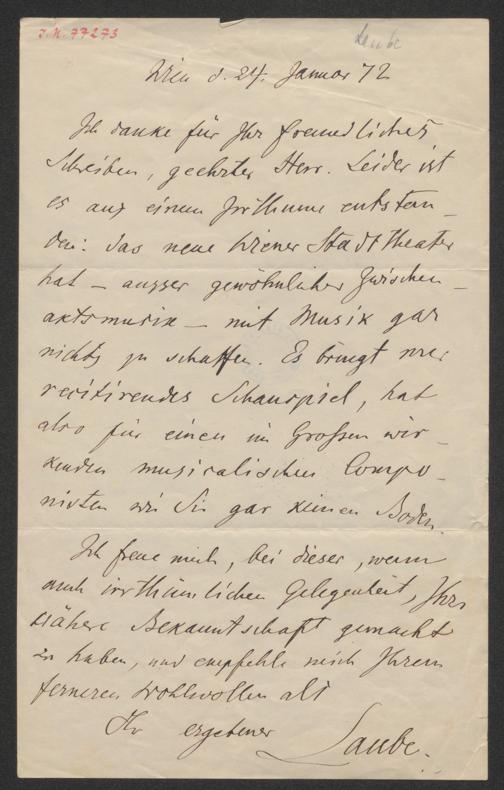 I.N. 77273
Laube
Wien d. 24. Januar 72
Ich danke für Ihr freundliches
Schreiben, geehrter Herr. Leider ist
es aus einem Irrthume entstan-
den: das neue Wiener Stadttheater
hat – ausser gewöhnlicher Zwischen-
aktsmusik – mit Musik gar
nichts zu schaffen. Es bringt nur
recitirendes Schauspiel, hat
also für einen im Grossen wir-
kenden musicalischen Compo-
nisten wie Sie gar keinen Boden.
Ich freue mich, bei dieser, wenn
auch irrthümlichen Gelegenheit, Ihre
nähere Bekanntschaft gemacht
zu haben, und empfehle mich Ihrem
ferneren Wohlwollen als
Ihr ergebener
Laube.